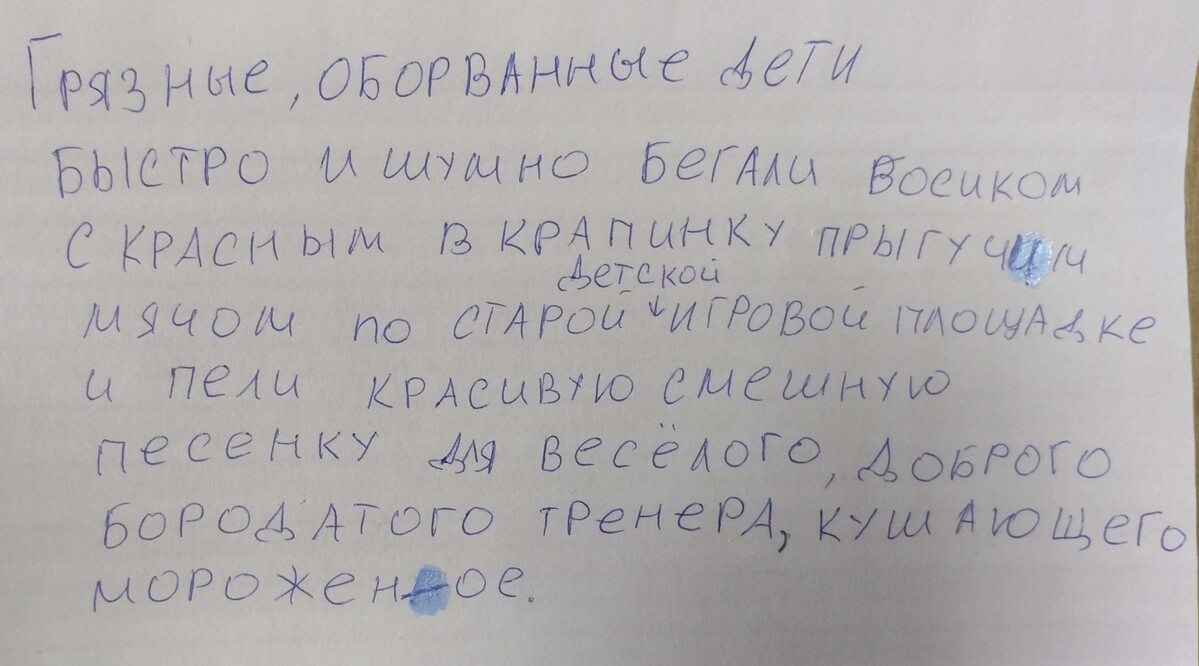 Грязные, оборванные дети
быстро и шумно бегали восиком
с красным в крапинку прыгучим
детской
мячом по старой игровой площадке
и пели красивую смешную
песенку для весёлого, доброго
бородатого тренера, кушающего
мороженое.